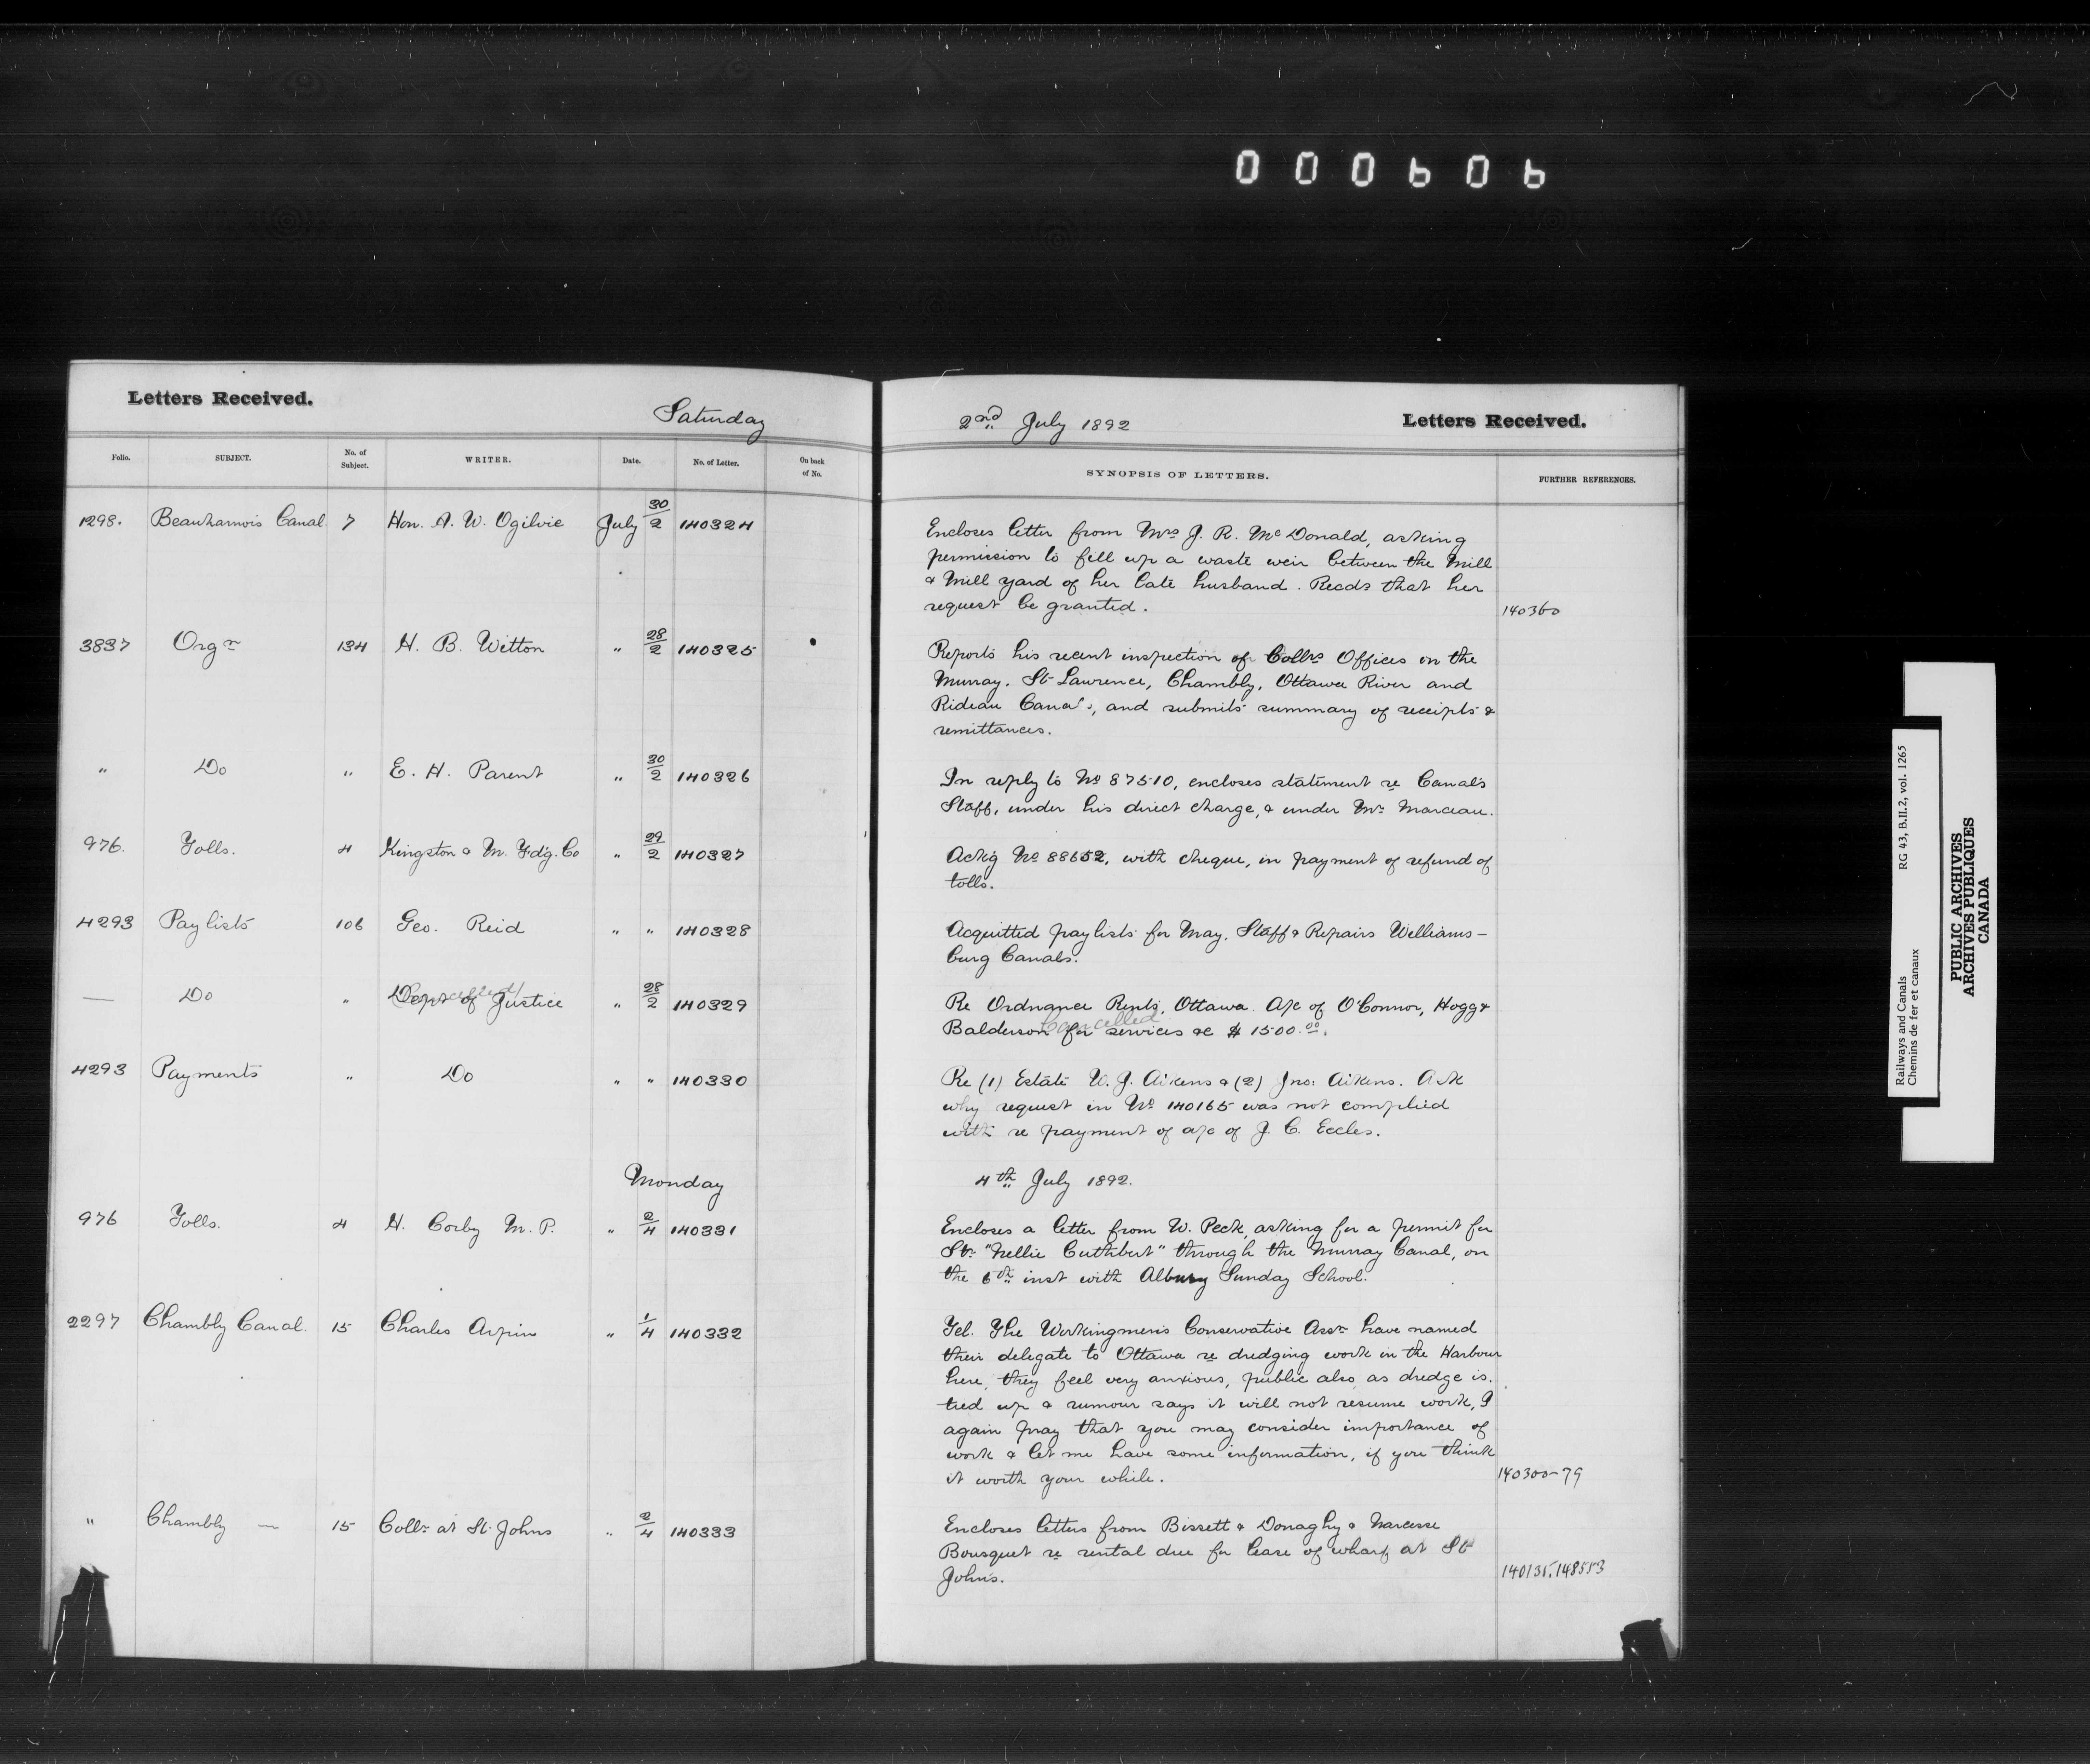 000606
Letters Received.
Saturday
2nd July 1892
Letters Received.
Folio. SUBJECT. No. of Subject. WRITER. Date. No. of Letter. On back of No. SYNOPSIS OF LETTERS. FURTHER REFERENCES.
1298. Beauharnois Canal 7 Hon. A. W. Ogilvie July 30/2 140324
Encloses letter from Mrs J. R. McDonald, asking
permission to fill up a waste weir between the Mill
& Mill yard of her late husband. Recds that her
request be granted. 140360
3837 Orgn 134 H. B. Witton " 28/2 140325
Reports his recent inspection of Collrs Offices on the
Murray, St Lawrence, Chambly, Ottawa River and
Rideau Canals, and submits summary of receipts &
remittances.
" Do " E. H. Parent " 30/2 140326
In reply to No 87510, encloses statement re Canals
Staff, under his direct charge, & under Mr Marceau.
976. Tolls. 4 Kingston & M. Fdg. Co " 29/2 140327
Ackg No 88652, with cheque, in payment of refund of
tolls.
4293 Paylists 106 Geo. Reid " " 140328
Acquitted paylists for May, Staff & Repairs Williams-
burg Canals.
— Do " Dept of Justice " 28/2 140329
Cancelled
Re Ordnance Rents, Ottawa. A/c of O'Connor, Hogg &
Cancelled
Balderson for services re $1500.00.
4293 Payments " Do " " 140330
Re (1) Estate W. J. Aikens & (2) Jno: Aikens. Ask
why request in No 140165 was not complied
with re payment of a/c of J. C. Eccles.
Monday
4th July 1892.
976 Tolls. 4 H. Corby M. P. " 2/4 140331
Encloses a letter from W. Peck, asking for a permit for
Str "Nellie Cuthbert" through the Murray Canal, on
the 6th inst with Albury Sunday School.
2297 Chambly Canal. 15 Charles Arpin " 1/4 140332
Tel. The Workingmen's Conservative Assn have named
their delegate to Ottawa re dredging work in the Harbour
here, they feel very anxious, public also, as dredge is
tied up & rumour says it will not resume work, I
again pray that you may consider importance of
work & let me have some information, if you think
it worth your while. 140300-79
" Chambly — 15 Collr at St. Johns " 2/4 140333
Encloses letters from Bissett & Donaghy & Narcisse
Bousquet re rental due for lease of wharf at St
Johns. 140131.148553
Railways and Canals RG 43, B.II.2, vol. 1265
Chemins de fer et canaux
PUBLIC ARCHIVES
ARCHIVES PUBLIQUES
CANADA